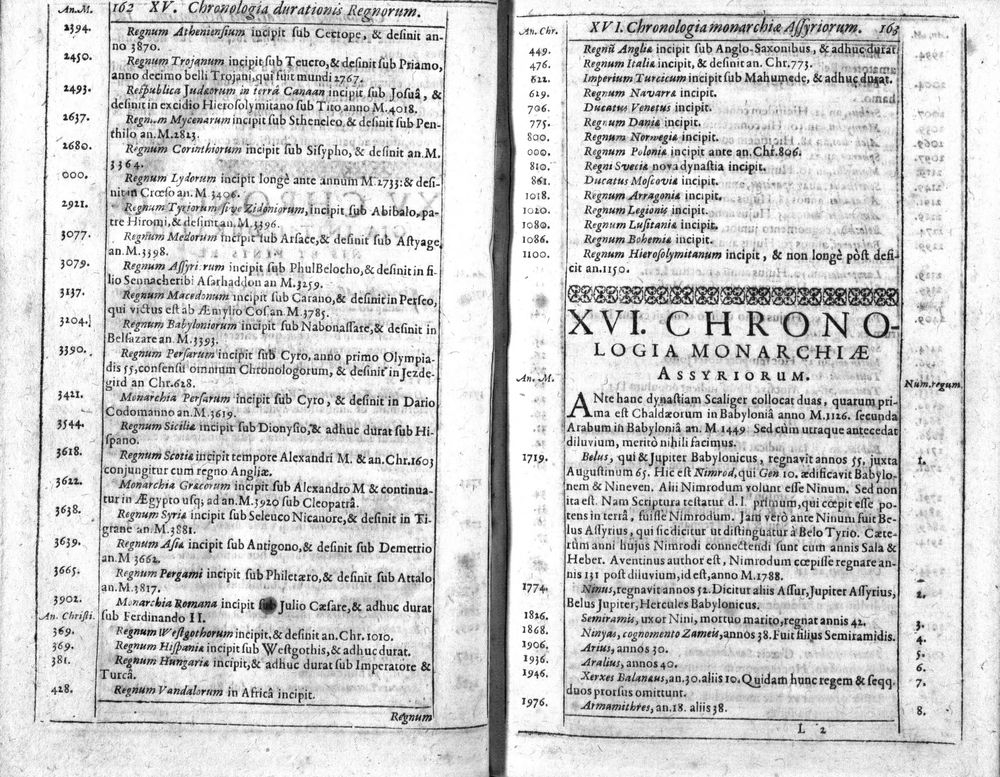 An.M. 162 XV. Chronologia durationis Regnorum.
2394. Regnum Atheniensium incipit sub Cecrope, & desinit an-
no 3870.
2450. Regnum Trojanum incipit sub Teucro, & desinit sub Priamo,
anno decimo belli Trojani, qui fuit mundi 2767.
2493. Respublica Judæorum in terrâ Canaan incipit sub Josuâ, &
desinit in excidio Hierosolymitano sub Tito anno M.4018.
2637. Regnum Mycenarum incipit sub Stheneleo, & desinit sub Pen-
thilo an.M.2823.
2680. Regnum Corinthiorum incipit sub Sisypho, & desinit an.M.
3364.
000. Regnum Lydorum incipit longè ante annum M.2733: & desi-
nit in Crœso an.M.3406.
2921. Regnum Tyriorum sive Zidoniorum, incipit sub Abibalo, pa-
tre Hiromi, & desinit an.M.3396.
3077. Regnum Medorum incipit sub Arsace, & desinit sub Astyage,
an.M.3398.
3079. Regnum Assyriorum incipit sub Phul Belocho, & desinit in fi-
lio Sennacheribi Asarhaddon an M.3259.
3137. Regnum Macedonum incipit sub Carano, & desinit in Perseo,
qui victus est ab Æmylio Cos. an M.3785.
3204. Regnum Babyloniorum incipit sub Nabonassare, & desinit in
Belsazare an M.3393.
3390. Regnum Persarum incipit sub Cyro, anno primo Olympia-
dis 55, consensu omnium Chronologorum, & desinit in Jezde-
gird an Chr.628.
3421. Monarchia Persarum incipit sub Cyro, & desinit in Dario
Codomanno an.M.3619.
3544. Regnum Siciliæ incipit sub Dionysio, & adhuc durat sub Hi-
spano.
3618. Regnum Scotiæ incipit tempore Alexandri M. & an.Chr.1603
conjungitur cum regno Angliæ.
3622. Monarchia Græcorum incipit sub Alexandro M & continua-
tur in Ægypto usq; ad an.M.3920 sub Cleopatrâ.
3638. Regnum Syriæ incipit sub Seleuco Nicanore, & desinit in Ti-
grane an M.3881.
3639. Regnum Asiæ incipit sub Antigono, & desinit sub Demetrio
an.M 3662.
3665. Regnum Pergami incipit sub Philetæro, & desinit sub Attalo
an.M.3817.
3902. Monarchia Romana incipit sub Julio Cæsare, & adhuc durat
An. Christi. sub Ferdinando II.
369. Regnum Westgothorum incipit, & desinit an.Chr.1010.
369. Regnum Hispaniæ incipit sub Westgothis, & adhuc durat.
381. Regnum Hungariæ incipit, & adhuc durat sub Imperatore &
Turcâ.
428. Regnum Vandalorum in Africâ incipit.
Regnum
An. Chr. XVI. Chronologia monarchiæ Assyriorum. 163
449. Regnū Angliæ incipit sub Anglo-Saxonibus, & adhuc durat
476. Regnum Italiæ incipit, & desinit an. Chr.773.
622. Imperium Turcicum incipit sub Mahumede, & adhuc durat.
619. Regnum Navarræ incipit.
706. Ducatus Venetus incipit.
775. Regnum Daniæ incipit.
800. Regnum Norwegiæ incipit.
000. Regnum Poloniæ incipit ante an.Chr.806.
810. Regni Sveciæ nova dynastia incipit.
861. Ducatus Moscoviæ incipit.
1018. Regnum Arragoniæ incipit.
1020. Regnum Legionis incipit.
1080. Regnum Lusitaniæ incipit.
1086. Regnum Bohemiæ incipit.
1100. Regnum Hierosolymitanum incipit, & non longè pòst defi-
cit an.1150.
XVI. CHRONO-
LOGIA MONARCHIÆ
An. M. ASSYRIORUM. Num.regum.
ANte hanc dynastiam Scaliger collocat duas, quarum pri-
ma est Chaldæorum in Babyloniâ anno M.1126. secunda
Arabum in Babyloniâ an. M 1449. Sed cùm utraque antecedat
diluvium, meritò nihili facimus.
1719. Belus, qui & Jupiter Babylonicus, regnavit annos 55, juxta 1.
Augustinum 65. Hic est Nimrod, qui Gen 10. ædificavit Babylo-
nem & Nineven. Alii Nimrodum volunt esse Ninum. Sed non
ita est. Nam Scriptura testatur d.l primum, qui cœpit esse po-
tens in terrâ, fuisse Nimrodum. Jam verò ante Ninum fuit Be-
lus Assyrius, qui sic dicitur ut distinguatur à Belo Tyrio. Cæte-
rùm anni hujus Nimrodi connectendi sunt cum annis Sala &
Heber. Aventinus author est, Nimrodum cœpisse regnare an-
nis 131 post diluvium, id est, anno M.1788.
1774. Ninus, regnavit annos 52. Dicitur aliis Assur, Jupiter Assyrius, 2.
Belus Jupiter, Hercules Babylonicus.
1826. Semiramis, uxor Nini, mortuo marito, regnat annis 42. 3.
1868. Ninyas, cognomento Zameis, annos 38. Fuit filius Semiramidis. 4.
1906. Arius, annos 30. 5.
1936. Aralius, annos 40. 6.
1946. Xerxes Balanæus, an.30. aliis 10. Quidam hunc regem & seqq. 7.
duos prorsus omittunt.
1976. Armamithres, an.18. aliis 38. 8.
L 2